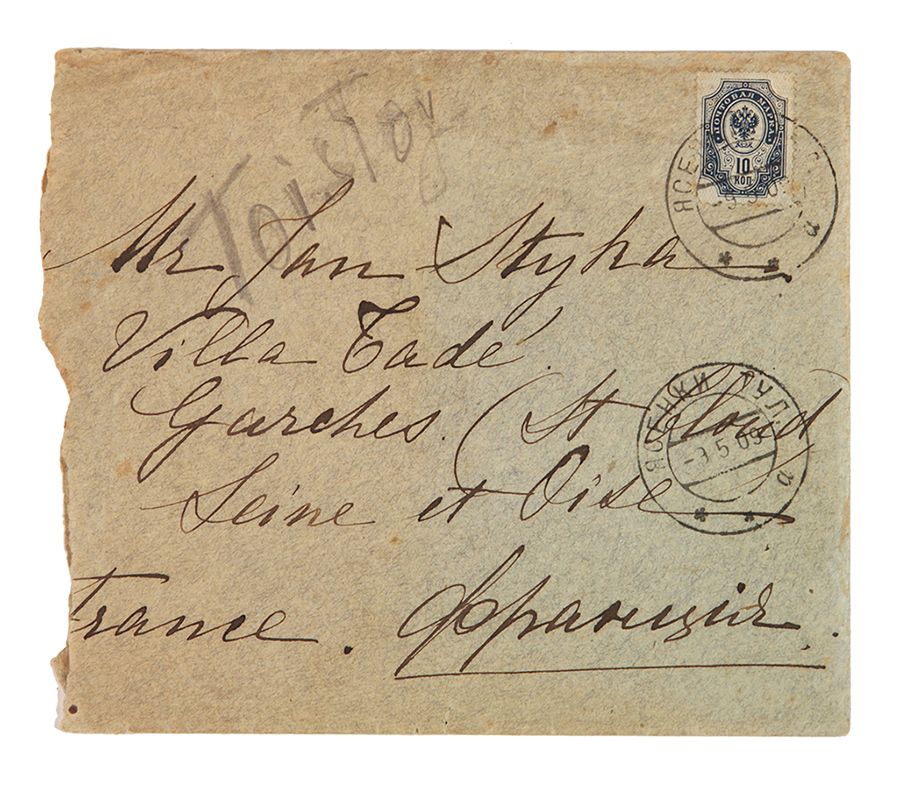 Tolstoy
ПОЧТОВАЯ МАРКА
10
КОП.
Mr Jan Styka
Villa Tadé
Garches. (St Cloud)
Seine et Oise
France. Франція.
ЯСЕНКИ ТУЛ.
-9.5.09
а